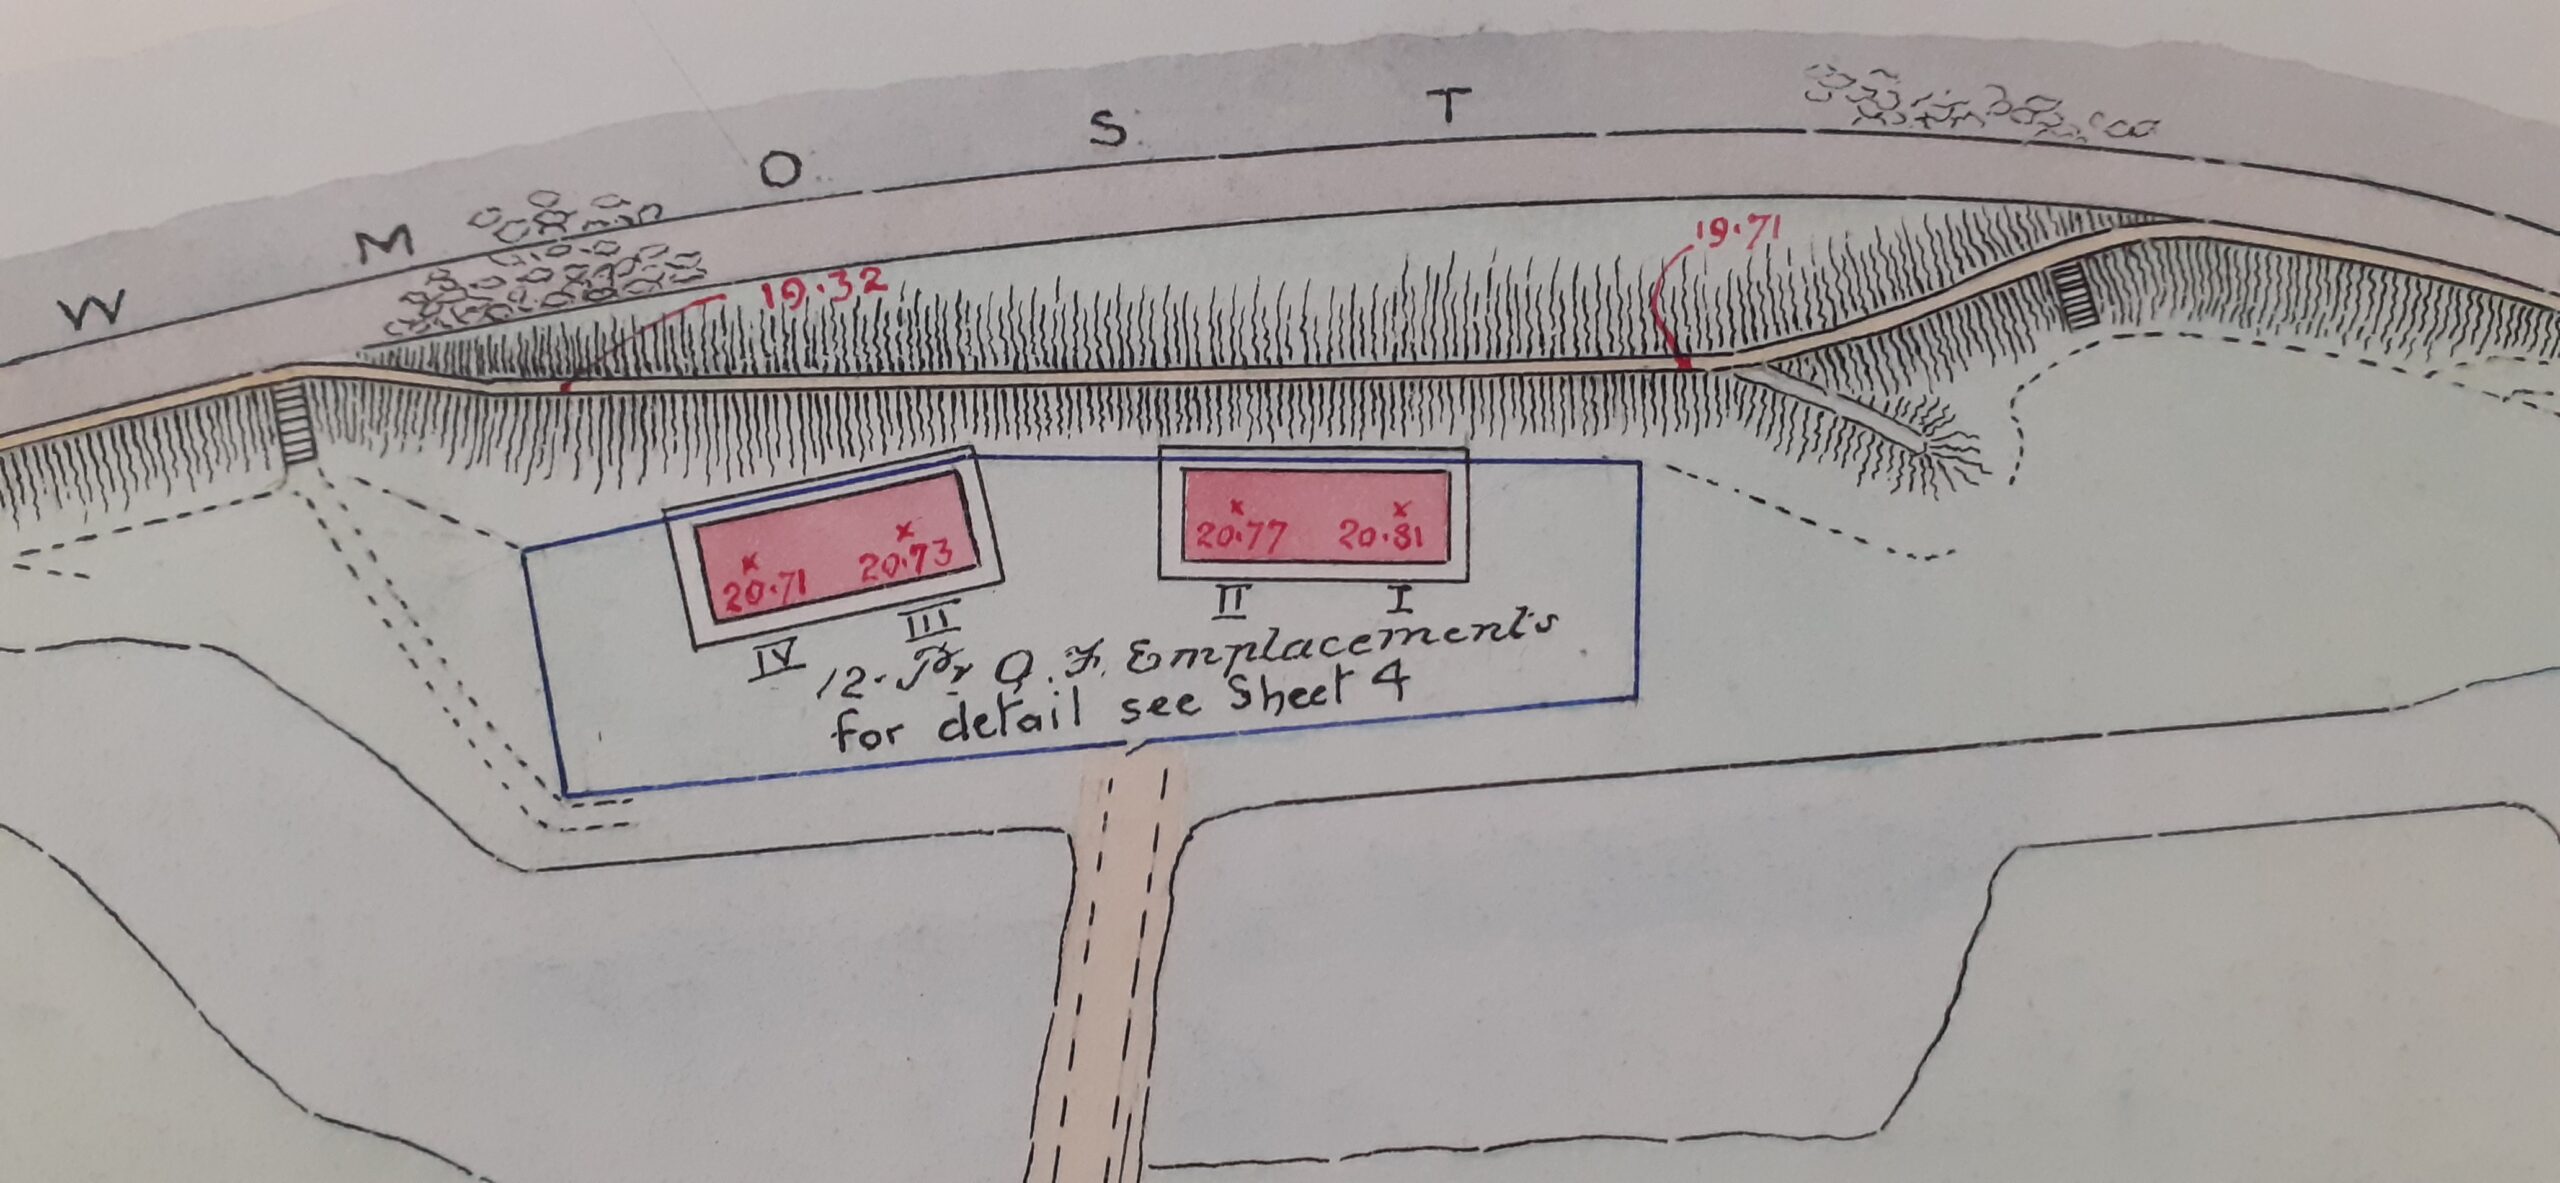 W M O S T
19.71
19.32
20.71 20.73 20.77 20.81
IV III II I
12-Pr Q.F. Emplacements
for detail see Sheet 4